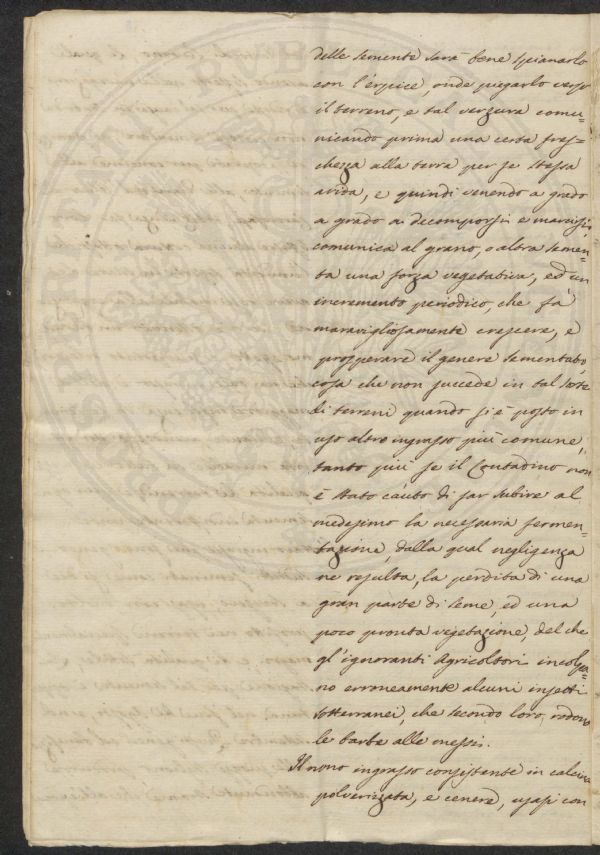 delle semente sarà bene spianarlo
con l'érpice, onde piegarlo verso
il terreno, e tal verzura comu-
nicando prima una certa fres-
chezza alla terra per se stessa
avida, e quindi venendo a grado
a grado a decomporsi e marcirsi,
comunica al grano, o altra semen-
ta una forza vegetativa, ed un
incremento periodico, che fà
maravigliosamente crescere, e
prosperare il genere sementato,
cosa che non succede in tal sorte
di terreni quando si è posto in
uso altro ingrasso più comune,
tanto più se il Contadino non
è stato cauto di far subire al
medesimo la necessaria fermen-
tazione, dalla qual negligenza
ne resulta, la perdita di una
gran parte di seme, ed una
poco pronta vegetazione, del che
gl'ignoranti Agricoltori incolpa-
no erroneamente alcuni insetti
sotterranei, che secondo loro, rodono
le barbe alle messi.
Il nono ingrasso consistente in calcina
polverizzata, e cenere, usasi con